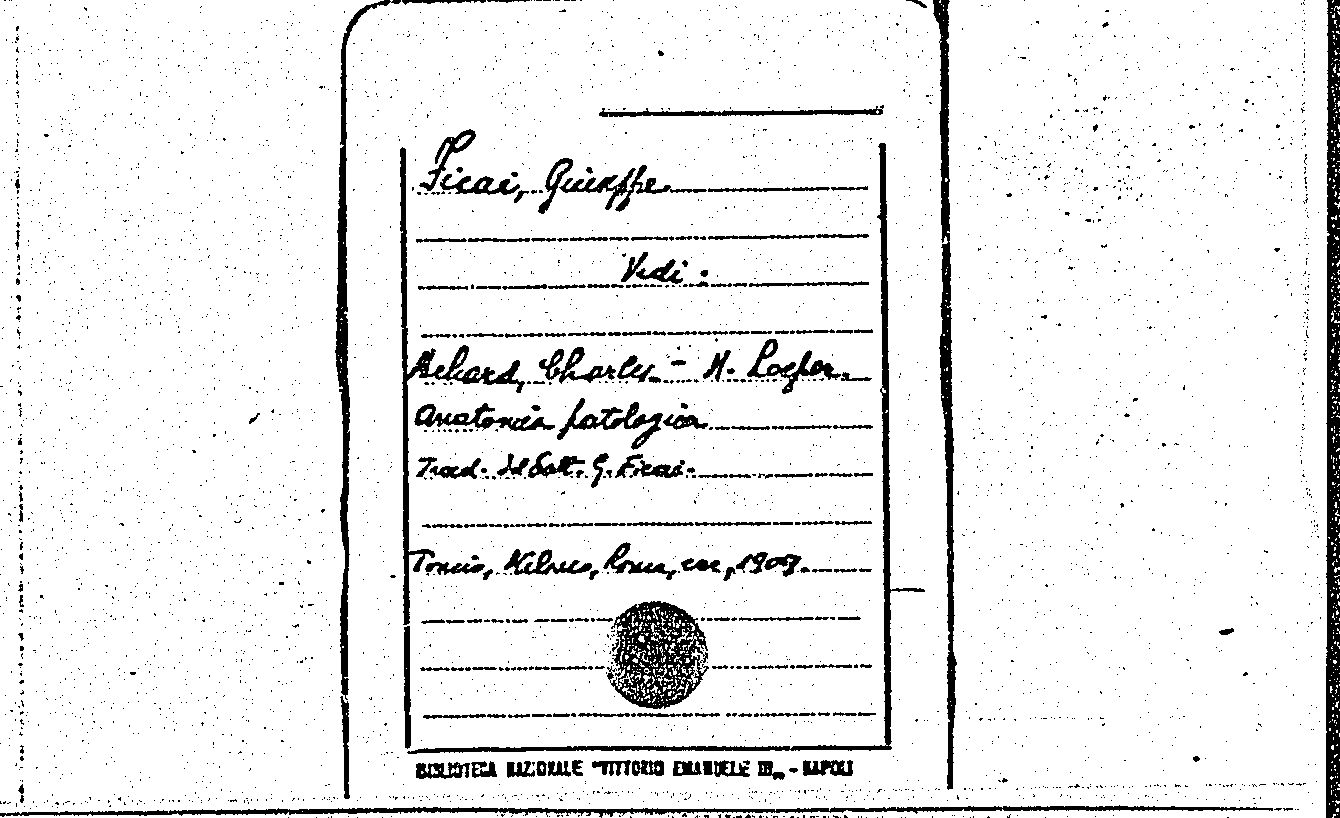 Ficai, Giuseppe.
Vedi:
Achard, Charles - M. Loeper.
Anatomia patologica
Trad. del Dott. G. Ficai.
Torino, Milano, Roma, ecc, 1909.
BIBLIOTECA NAZIONALE "VITTORIO EMANUELE III„ - NAPOLI